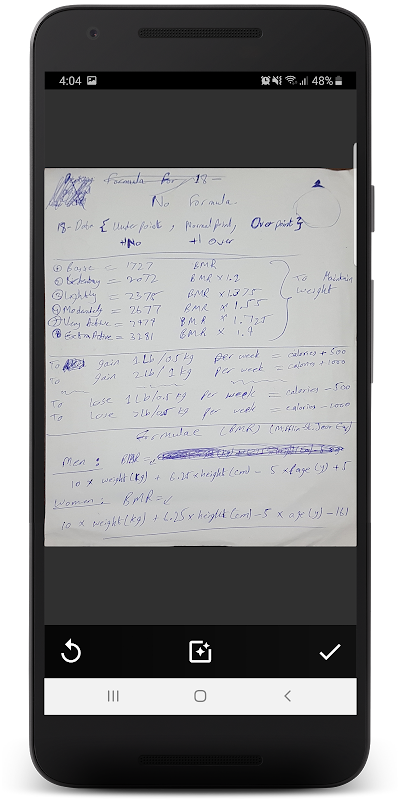 4:04 48%
Formula For 18-
No Formula.
18- { Under point, Normal point, Over point }
+No +1 Over
= 1727 BMR
= 2072 BMR x 1.2
Lightly = 2375 BMR x 1.375
To Maintain
Moderately = 2677 BMR x 1.55
weight
Very Active = 2979 BMR x 1.725
Extra Active = 3281 BMR x 1.9
To gain 1 Lb/0.5 kg per week = calories + 500
To gain 2Lb/ 1 kg per week = calories + 1000
To lose 1Lb/0.5 kg per week = calories - 500
To lose 2Lb/0.5 kg per week = calories - 1000
Formulae (BMR)
Men : BMR =
10 x weight (kg) + 6.25 x height (cm) - 5 x age (y) + 5
Women : BMR =
10 x weight (kg) + 6.25 x height (cm) - 5 x age (y) - 161